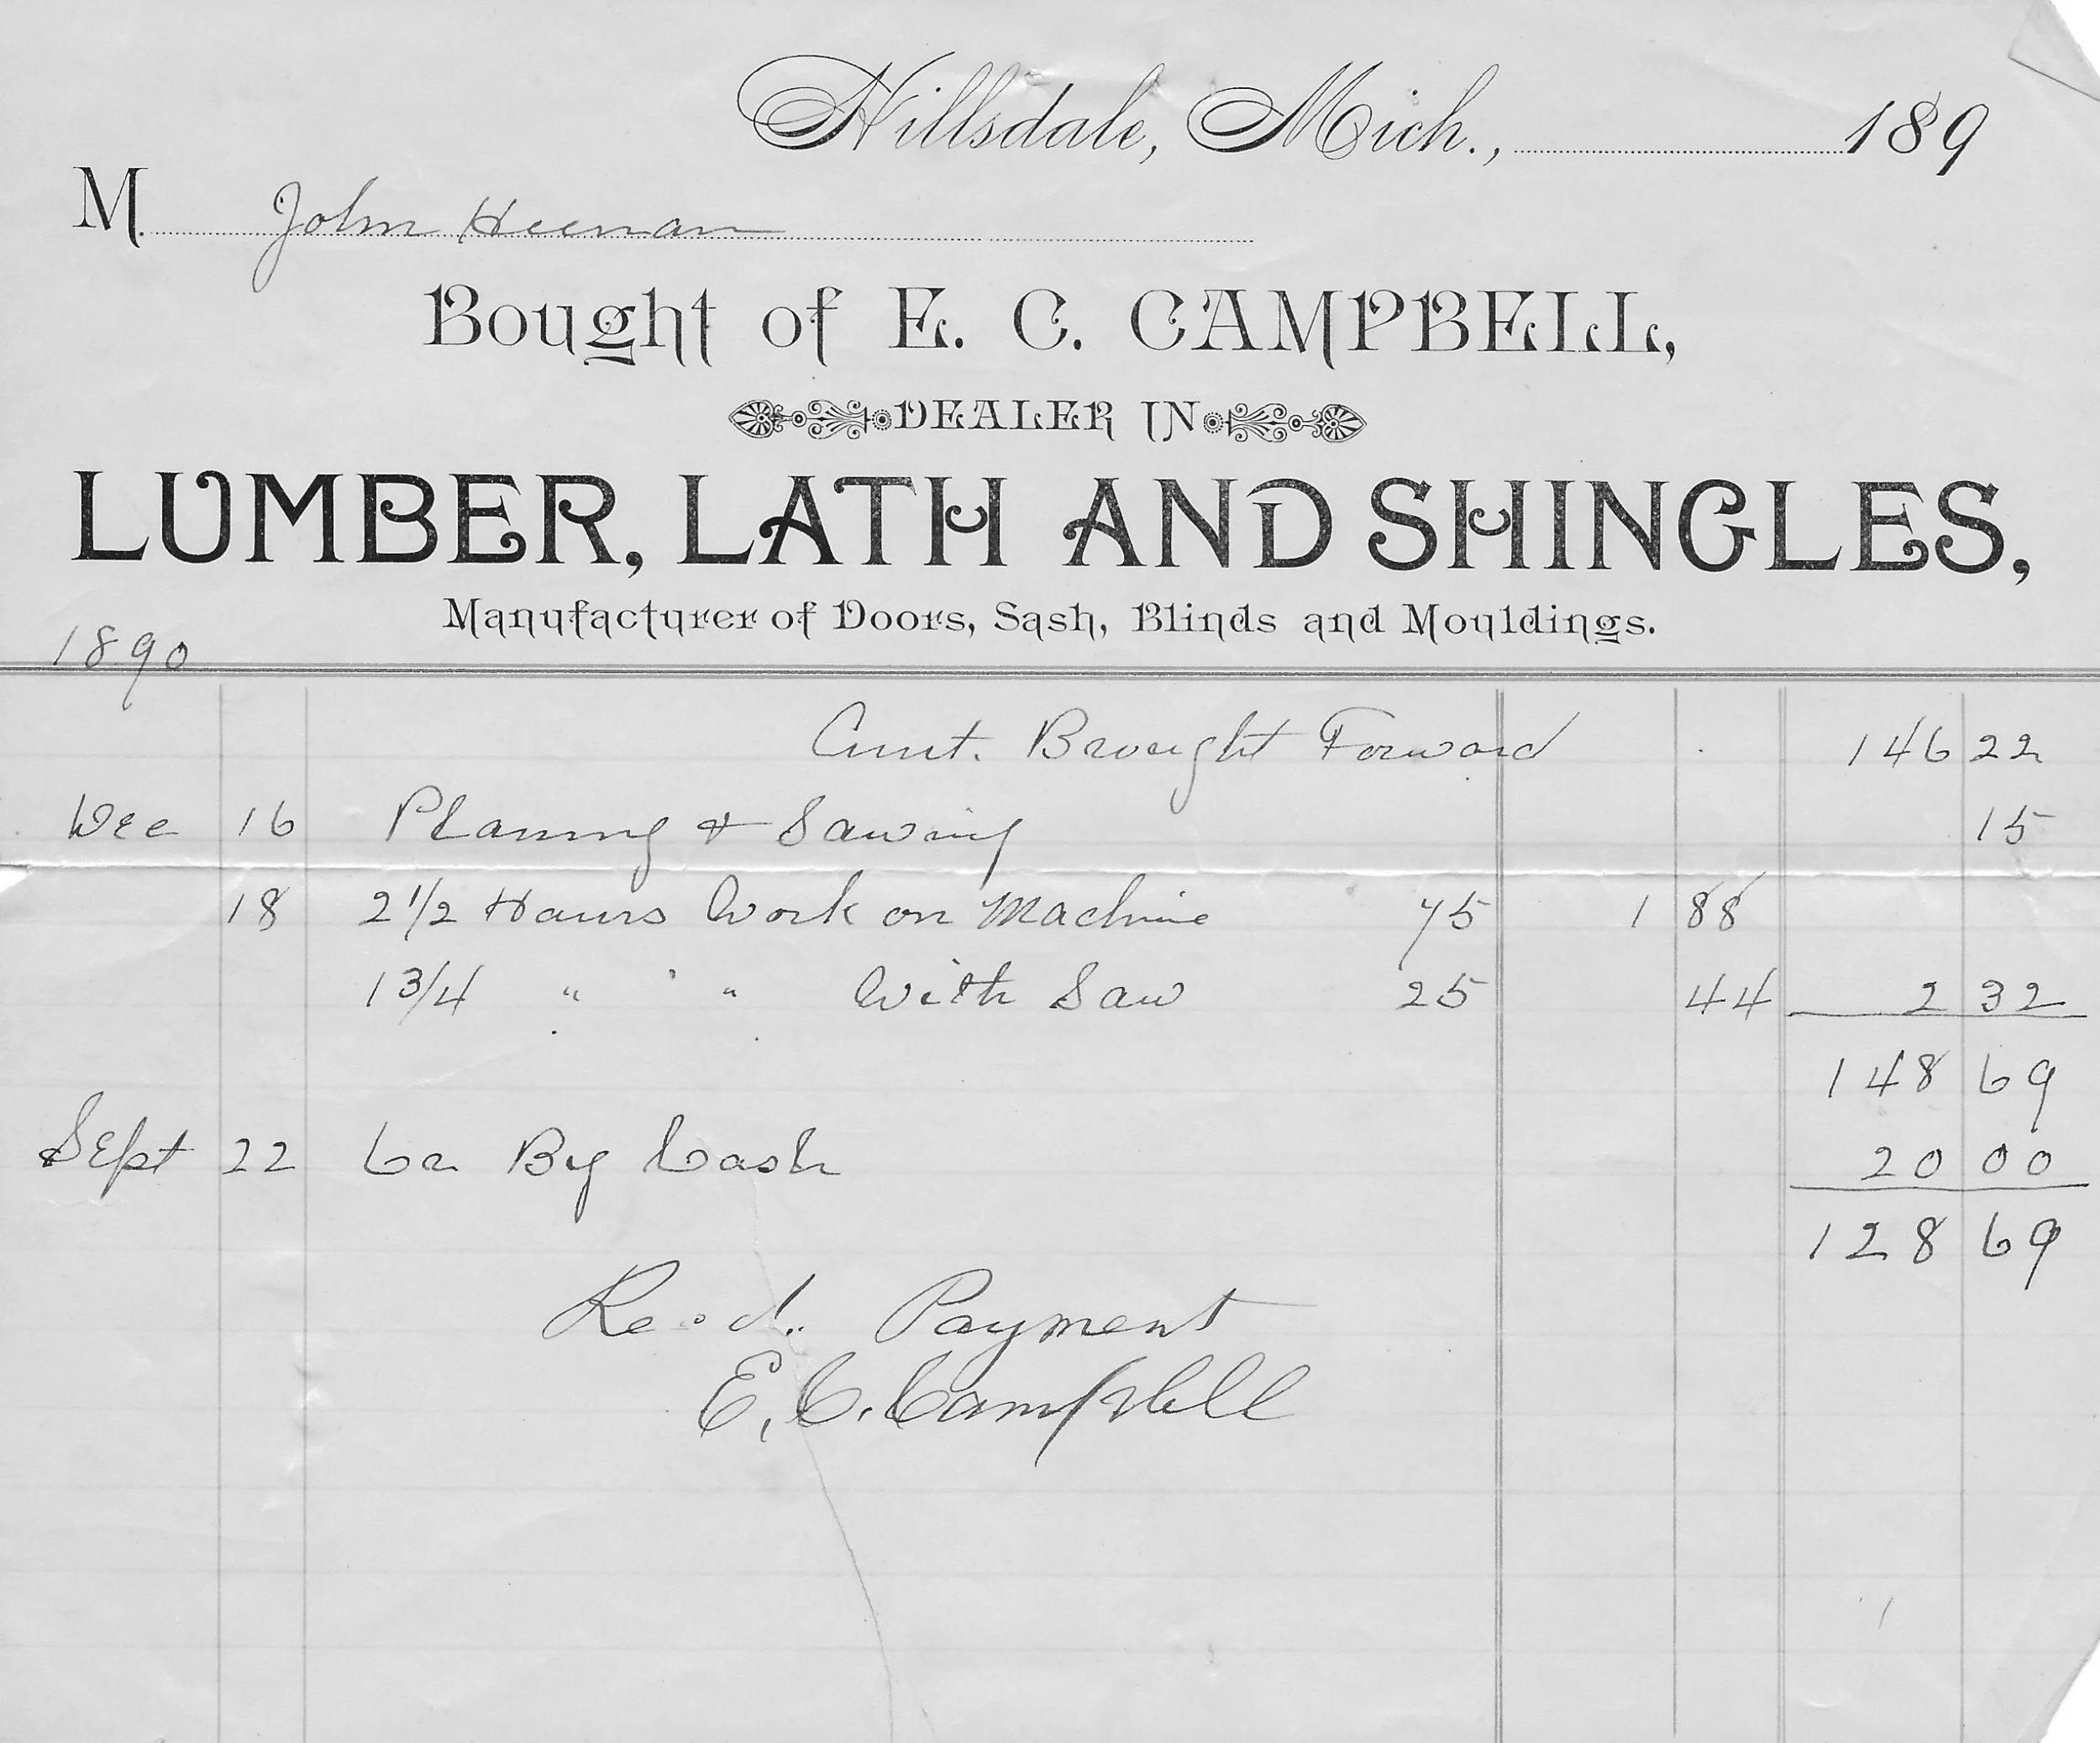 Hillsdale, Mich., 189
M. John Heenan
Bought of E. C. CAMPBELL,
DEALER IN
LUMBER, LATH AND SHINGLES,
Manufacturer of Doors, Sash, Blinds and Mouldings.
1890
Amt. Brought Forward 146 22
Dec 16 Planing & Sawing 15
18 2 1/2 Hours Work on Machine 75 1 88
1 3/4 " " With Saw 25 44 2 32
148 69
Sept 22 Cr By Cash 20 00
128 69
Recd. Payment
E. C. Campbell